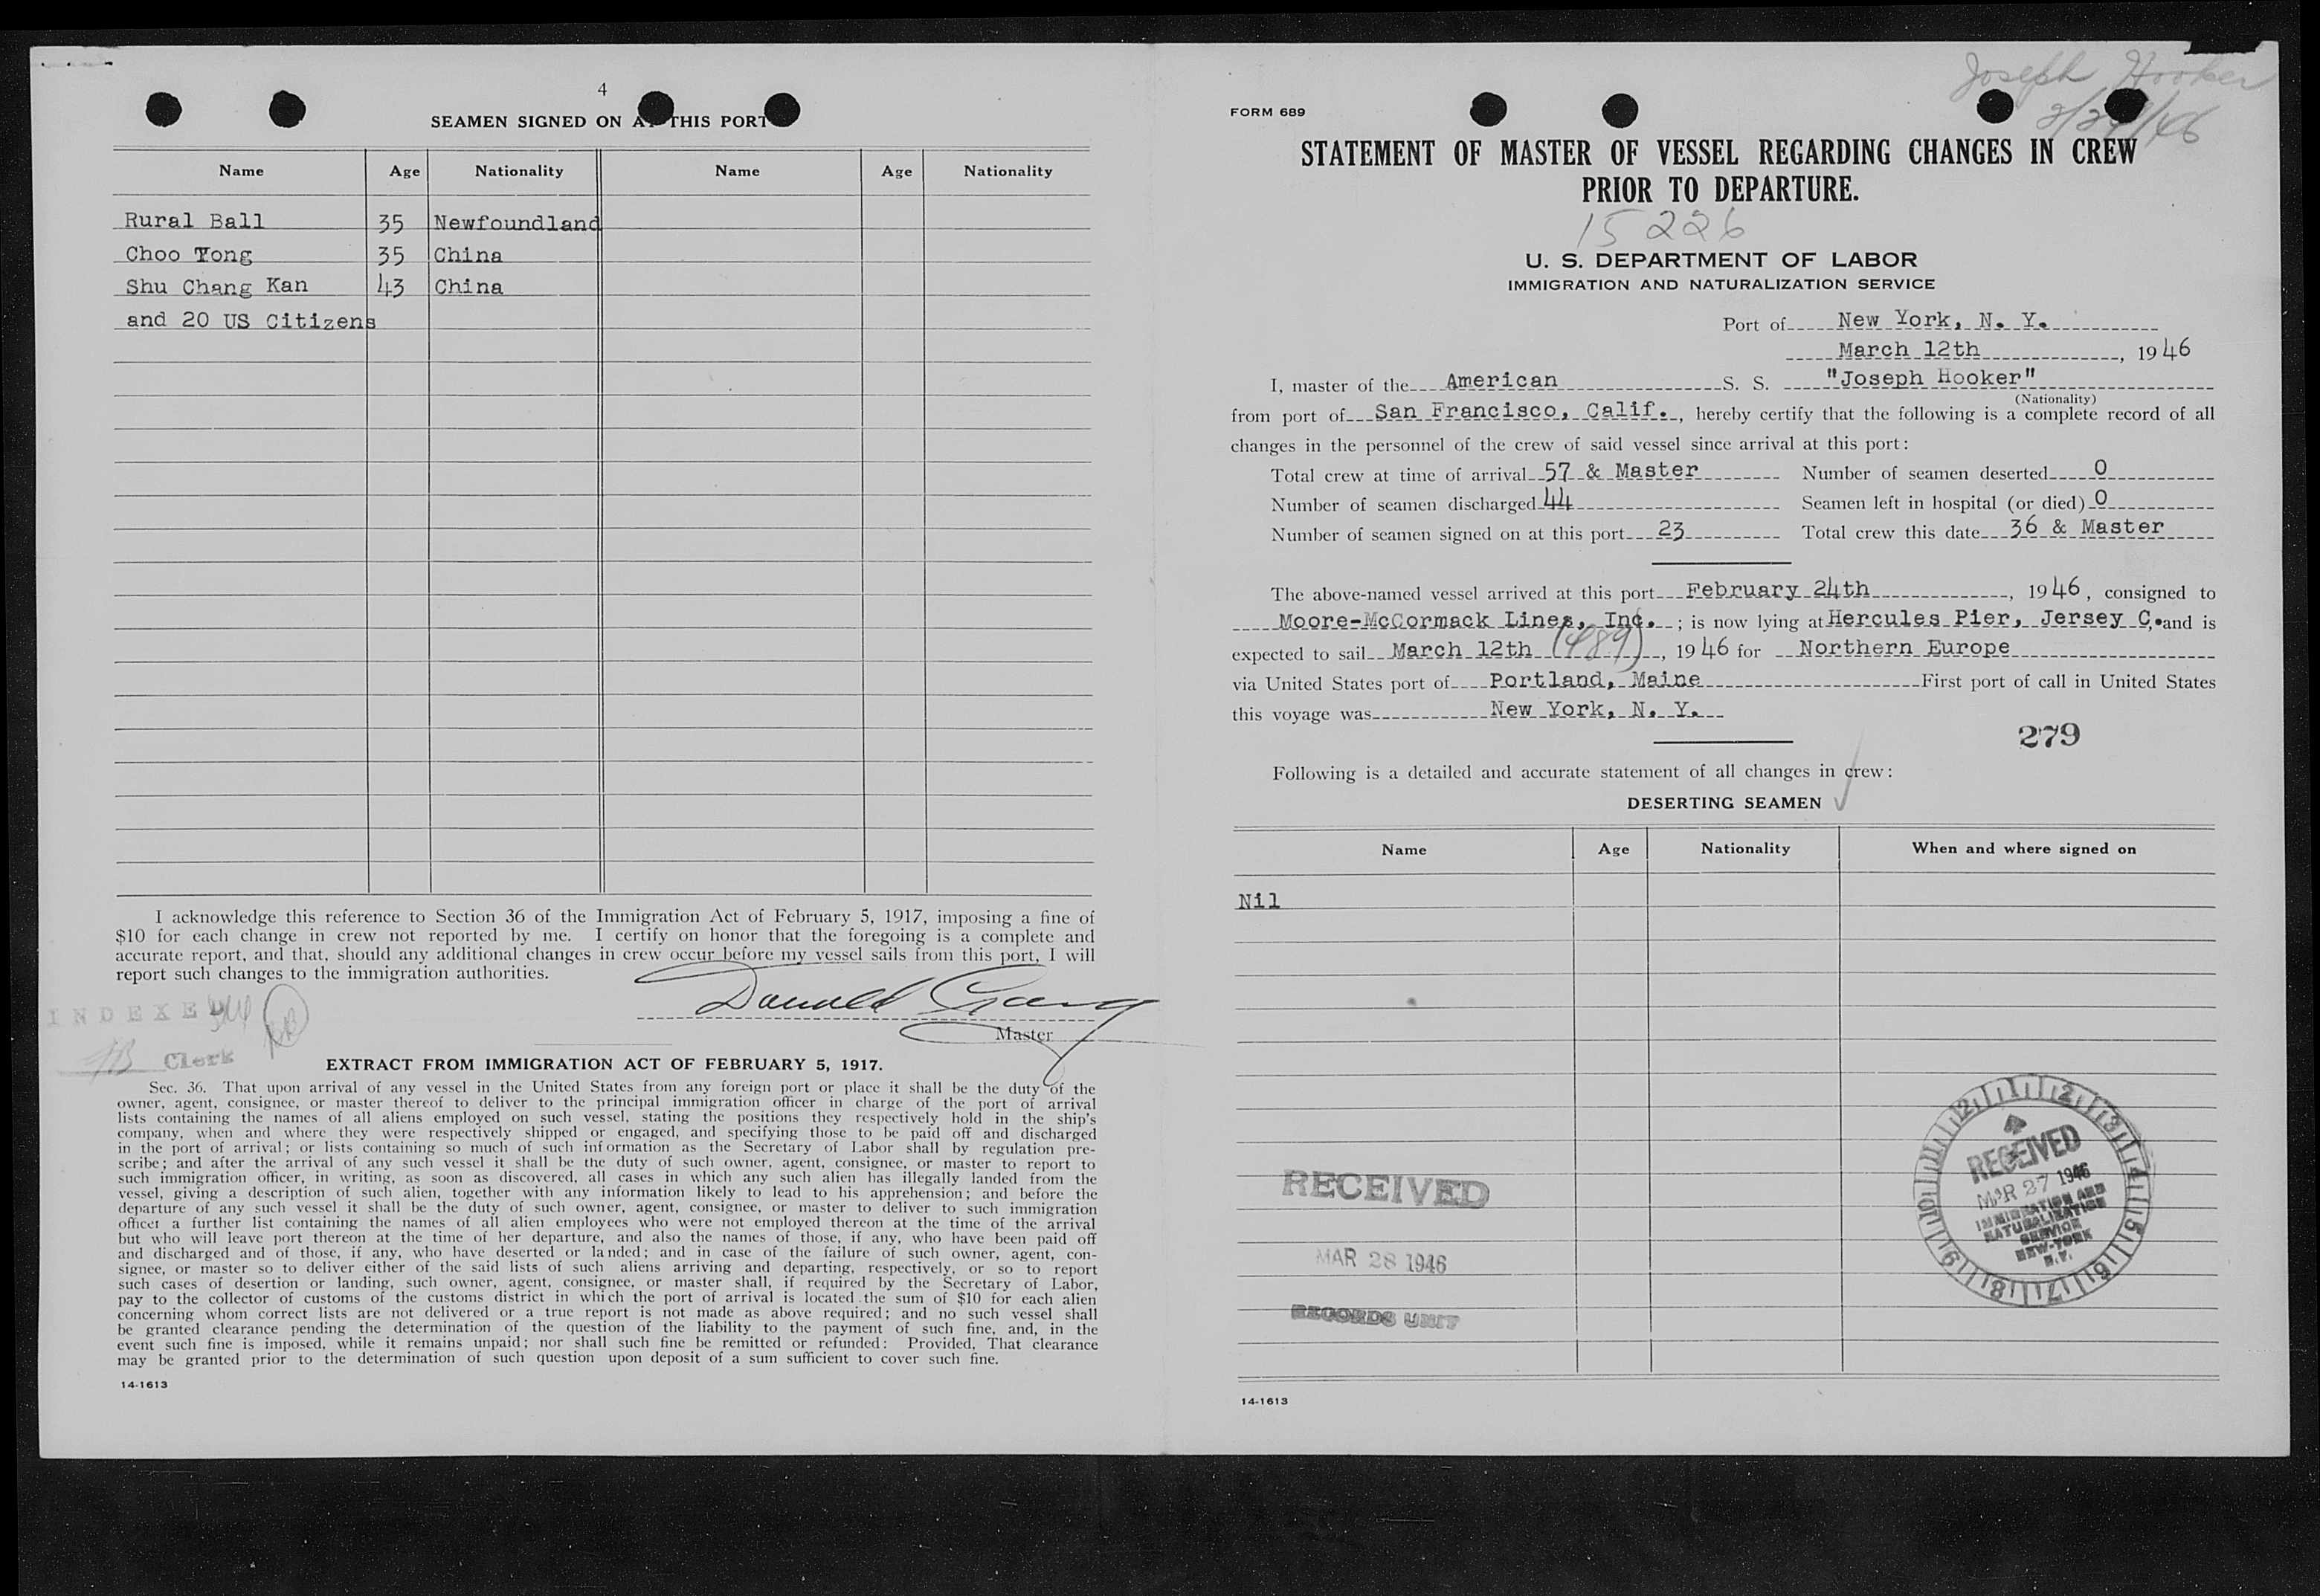 4
SEAMEN SIGNED ON AT THIS PORT
Name Age Nationality Name Age Nationality
Rural Ball 35 Newfoundland
Choo Tong 35 China
Shu Chang Kan 43 China
and 20 US Citizens
I acknowledge this reference to Section 36 of the Immigration Act of February 5, 1917, imposing a fine of
$10 for each change in crew not reported by me. I certify on honor that the foregoing is a complete and
accurate report, and that, should any additional changes in crew occur before my vessel sails from this port, I will
report such changes to the immigration authorities.
INDEXED
Donald
Master
Clerk
EXTRACT FROM IMMIGRATION ACT OF FEBRUARY 5, 1917.
Sec. 36. That upon arrival of any vessel in the United States from any foreign port or place it shall be the duty of the
owner, agent, consignee, or master thereof to deliver to the principal immigration officer in charge of the port of arrival
lists containing the names of all aliens employed on such vessel, stating the positions they respectively hold in the ship's
company, when and where they were respectively shipped or engaged, and specifying those to be paid off and discharged
in the port of arrival; or lists containing so much of such information as the Secretary of Labor shall by regulation pre-
scribe; and after the arrival of any such vessel it shall be the duty of such owner, agent, consignee, or master to report to
such immigration officer, in writing, as soon as discovered, all cases in which any such alien has illegally landed from the
vessel, giving a description of such alien, together with any information likely to lead to his apprehension; and before the
departure of any such vessel it shall be the duty of such owner, agent, consignee, or master to deliver to such immigration
officer a further list containing the names of all alien employees who were not employed thereon at the time of the arrival
but who will leave port thereon at the time of her departure, and also the names of those, if any, who have been paid off
and discharged and of those, if any, who have deserted or landed; and in case of the failure of such owner, agent, con-
signee, or master so to deliver either of the said lists of such aliens arriving and departing, respectively, or so to report
such cases of desertion or landing, such owner, agent, consignee, or master shall, if required by the Secretary of Labor,
pay to the collector of customs of the customs district in which the port of arrival is located the sum of $10 for each alien
concerning whom correct lists are not delivered or a true report is not made as above required; and no such vessel shall
be granted clearance pending the determination of the question of the liability to the payment of such fine, and, in the
event such fine is imposed, while it remains unpaid; nor shall such fine be remitted or refunded: Provided, That clearance
may be granted prior to the determination of such question upon deposit of a sum sufficient to cover such fine.
14-1613
Joseph Hooker
FORM 689
STATEMENT OF MASTER OF VESSEL REGARDING CHANGES IN CREW
PRIOR TO DEPARTURE.
15226
U. S. DEPARTMENT OF LABOR
IMMIGRATION AND NATURALIZATION SERVICE
Port of New York, N. Y.
March 12th, 1946
I, master of the American S. S. "Joseph Hooker"
(Nationality)
from port of San Francisco, Calif., hereby certify that the following is a complete record of all
changes in the personnel of the crew of said vessel since arrival at this port:
Total crew at time of arrival 57 & Master Number of seamen deserted 0
Number of seamen discharged 44 Seamen left in hospital (or died) 0
Number of seamen signed on at this port 23 Total crew this date 36 & Master
The above-named vessel arrived at this port February 24th, 1946, consigned to
Moore-McCormack Lines, Inc.; is now lying at Hercules Pier, Jersey C. and is
expected to sail March 12th (489), 1946 for Northern Europe
via United States port of Portland, Maine First port of call in United States
this voyage was New York, N. Y.
279
Following is a detailed and accurate statement of all changes in crew:
DESERTING SEAMEN
Name Age Nationality When and where signed on
Nil
RECEIVED
MAR 28 1946
RECORDS UNIT
12 1 2 3 4 5 6 7 8 9 10 11
RECEIVED
MAR 27 1946
IMMIGRATION AND
NATURALIZATION
SERVICE
NEW-YORK
N.Y.
14-1613